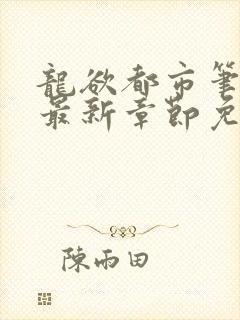 龍欲都市筆
最新章節免
陳雨田